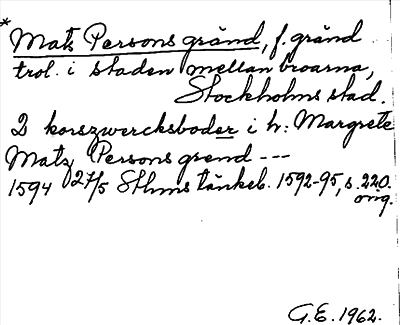 * Mats Persons gränd, f. gränd
trol. i staden mellan broarna,
Stockholms stad.
2 korszwercksboder i h: Margrete
Matz Persons grend ---
1594 27/5 Sthms tänkeb. 1592-95, s. 220.
orig.
G.E. 1962.